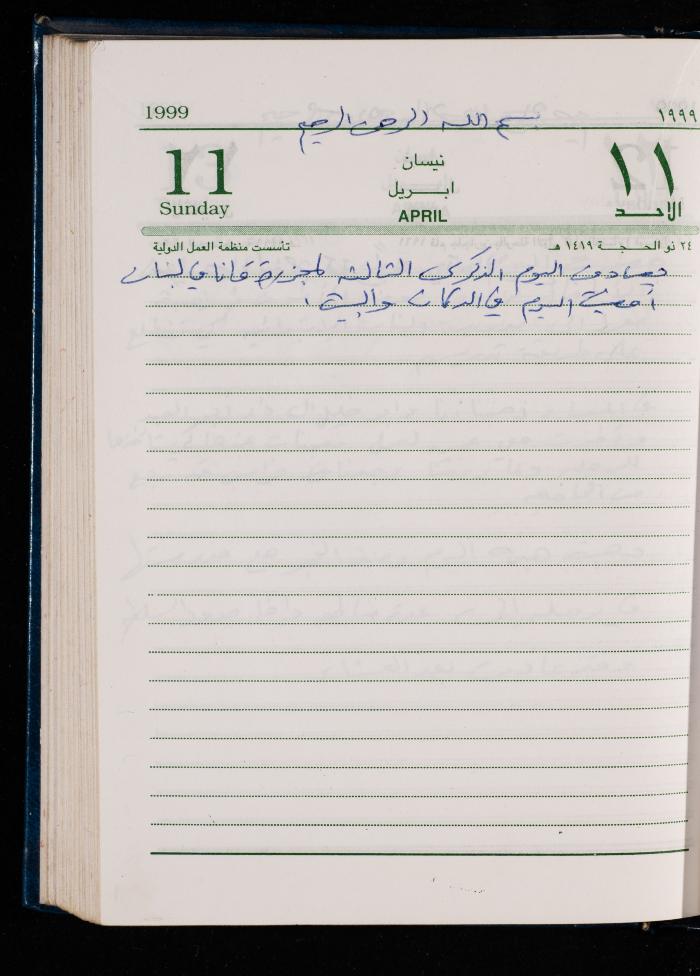 1999 ١٩٩٩
بسم الله الرحمن الرحيم
11 نيسان ١١
Sunday ابريل الاحد
APRIL
٢٤ ذو الحجة ١٤١٩ هـ تأسست منظمة العمل الدولية
يصادف اليوم الذكرى الثالثة لمجزرة قانا في لبنان
أمضيت اليوم في الدكان والبيت.